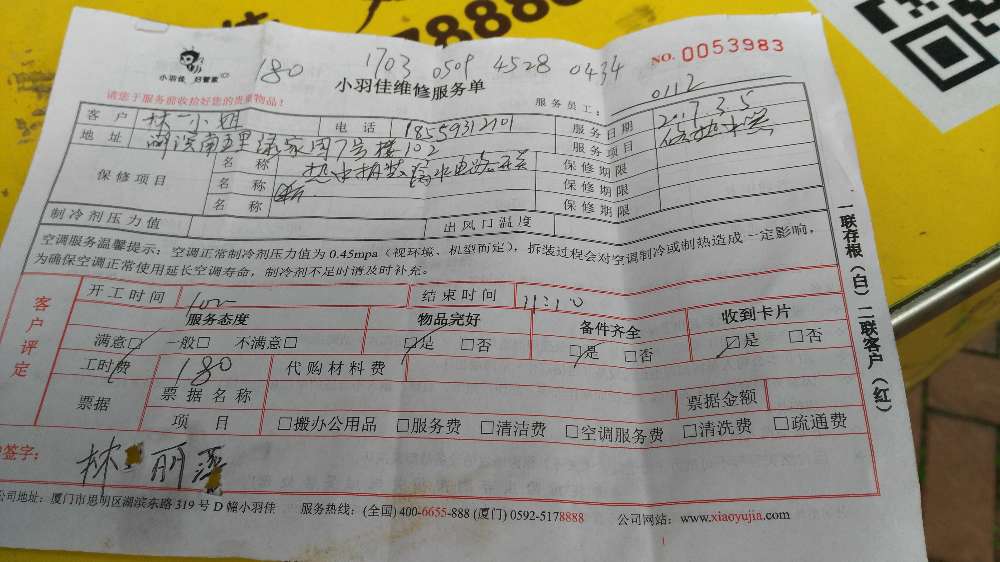 78886
小羽佳 好管家
180
1703 0509 4528 0434
NO. 0053983
小羽佳维修服务单
请您于服务前收拾好您的贵重物品!
服务员工: 0112
客户 林小姐 电话 18559312101 服务日期 2017.3.5
地址 湖滨南里绿家园7号楼102 服务项目 热水器
保修项目 名称 保修期限
名称 保修期限
名称 保修期限
制冷剂压力值 出风口温度
空调服务温馨提示:空调正常制冷剂压力值为 0.45mpa(视环境、机型而定),拆装过程会对空调制冷或制热造成一定影响,
为确保空调正常使用延长空调寿命,制冷剂不足时请及时补充。
一联存根(白)二联客户(红)
客户评定
开工时间 结束时间 11:10
服务态度 物品完好 备件齐全 收到卡片
满意□ 一般□ 不满意□ □是 □否 □是 □否 □是 □否
工时费 180 代购材料费
票据 票据名称 票据金额
项目 □搬办公用品 □服务费 □清洁费 □空调服务费 □清洗费 □疏通费
签字: 林丽
公司地址:厦门市思明区湖滨东路 319 号 D 幢小羽佳 服务热线:(全国) 400-6655-888 (厦门) 0592-5178888 公司网站:www.xiaoyujia.com